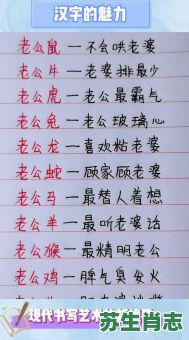 汉字的魅力
老公鼠—不会哄老婆
老公牛—老婆排最少
老公虎—老公最霸气
老公兔—老公玻璃心
老公龙—喜欢粘老婆
老公蛇—顾家顾老婆
老公马—最替人着想
老公羊—最听老婆话
老公猴—最精明老公
老公鸡—脾气臭癸火
现代书写艺术
苏生肖志